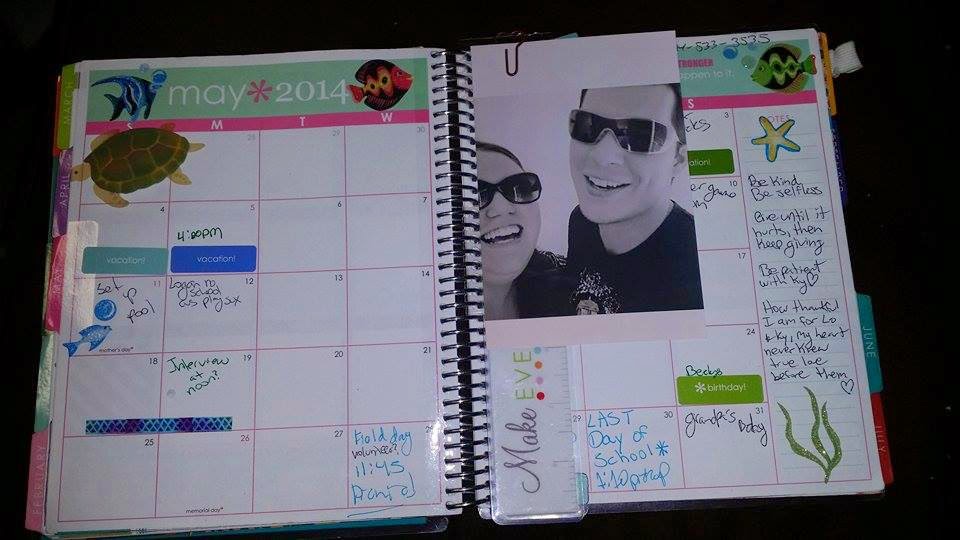 may*2014
S M T W
28 29 30
4 5 6 7
4:00pm
vacation! vacation!
11 12 13 14
set up pool
Logan no
school
mother's day*
18 19 20 21
Interview
at
noon?
25 26 27
Field day
volunteer?
11:45
memorial day*
MARCH
APRIL
MAY
FEBRUARY
Make EVE
-533-3535
STRONGER
happen to it.
S
3
ation!
10
17
24
Beckys
*birthday!
29 30 31
LAST
Day of
School*
Grandpa's
NOTES
Be Kind
Be selfless
Give until it
hurts, then
Keep giving
Be patient
with Ky♡
How thankful
I am for Lo
+ Ky, my heart
never knew
true love
before them
♡
JUNE
JULY